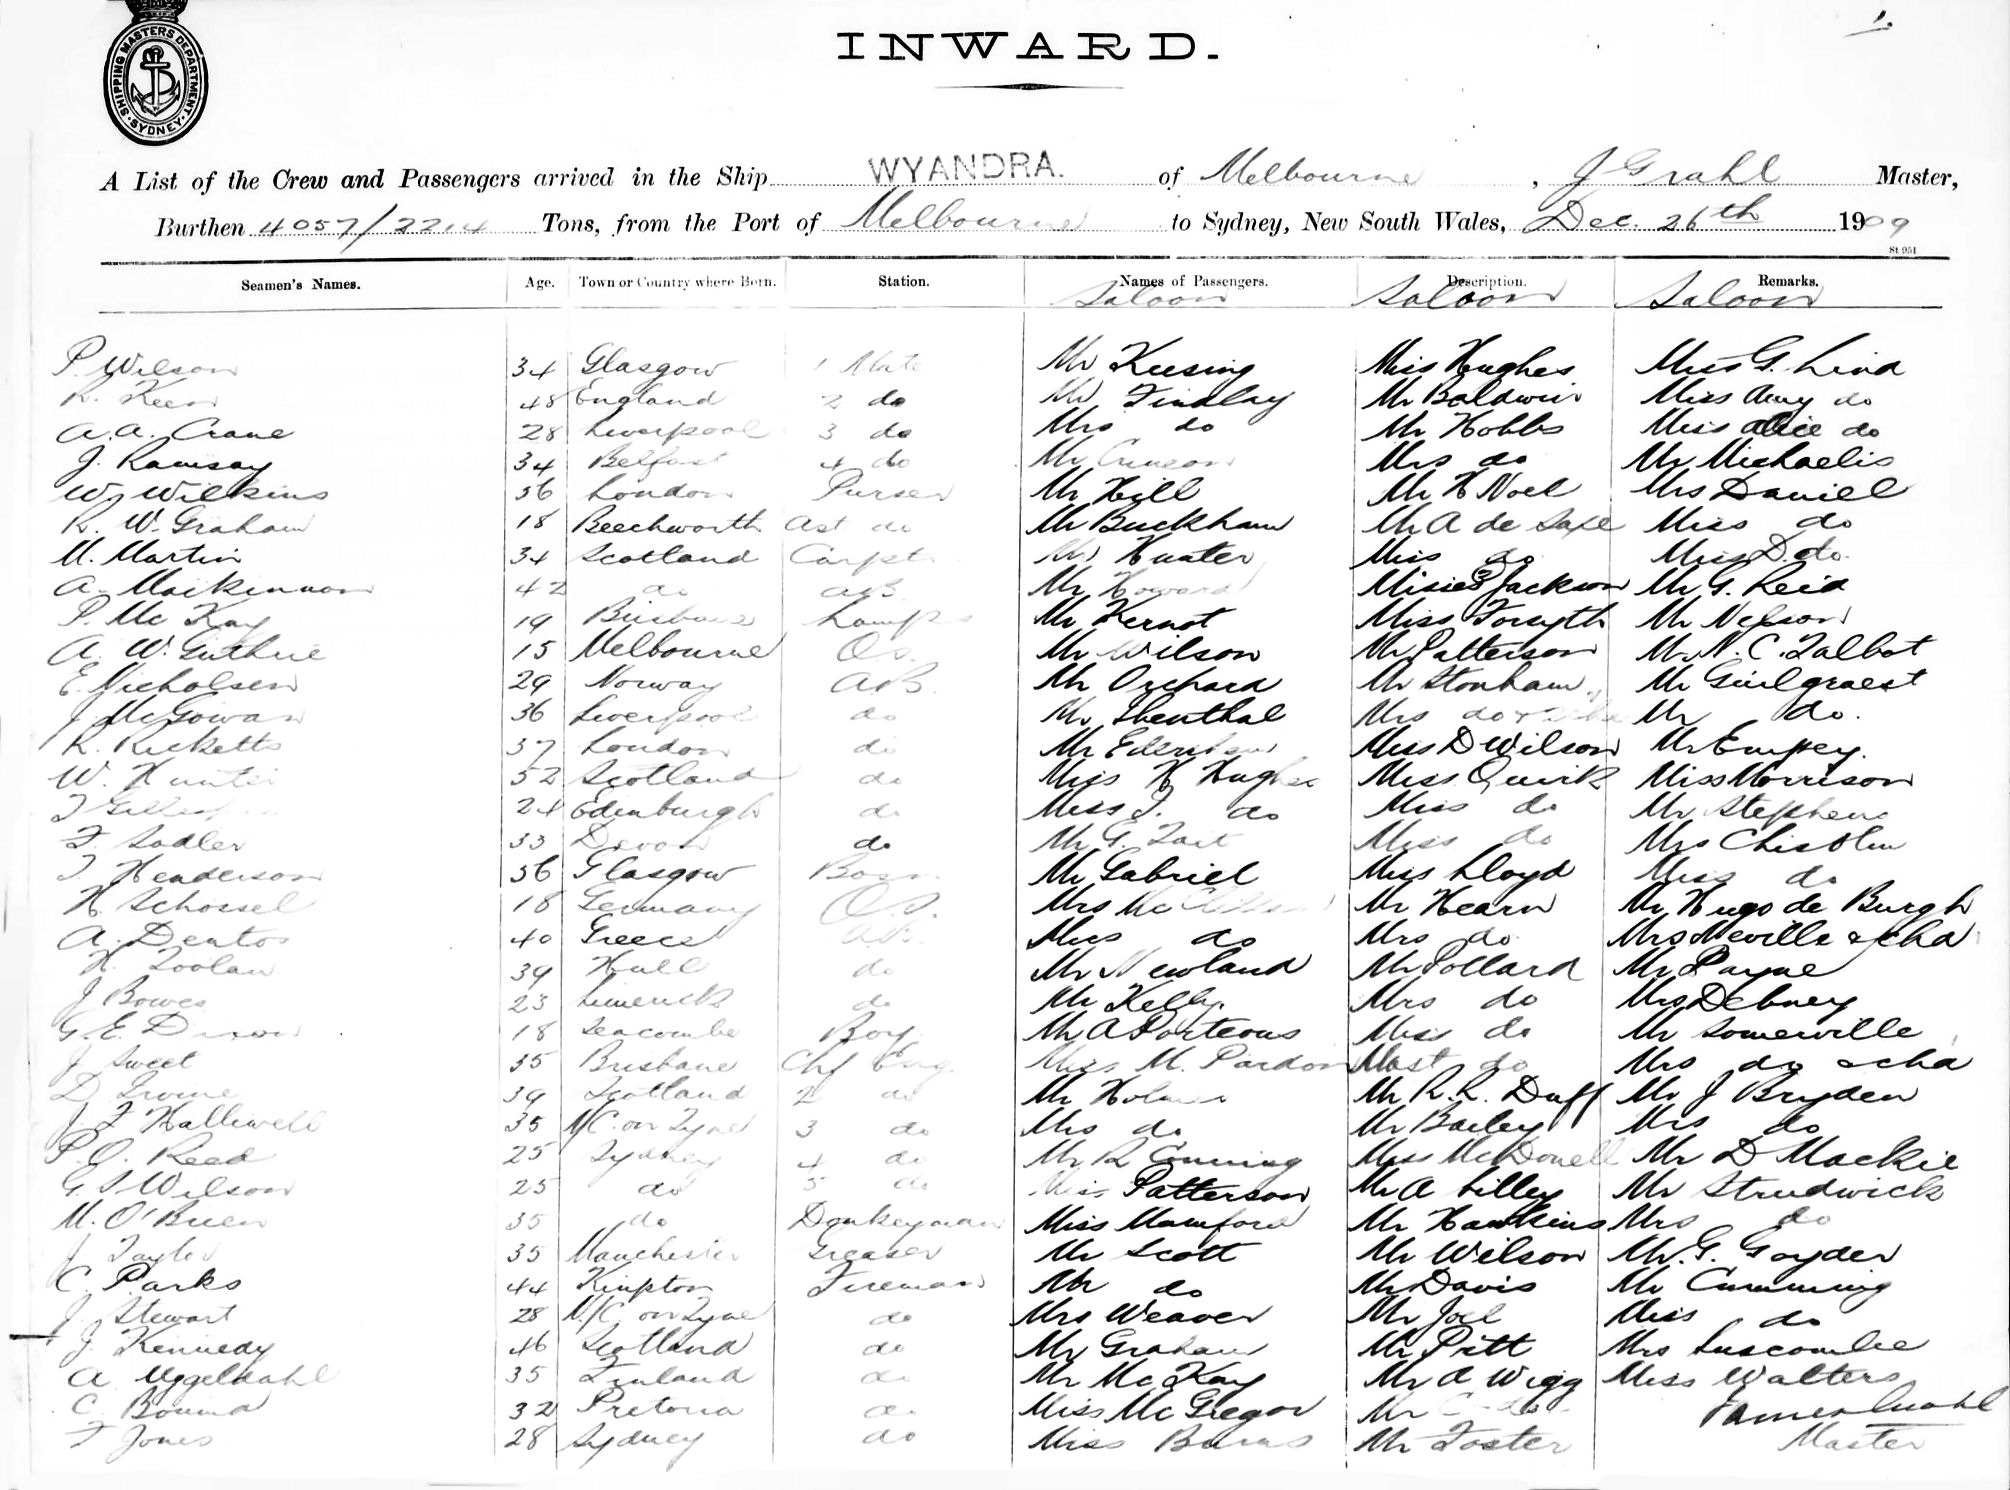 SHIPPING MASTERS DEPARTMENT SYDNEY
1.
INWARD.
A List of the Crew and Passengers arrived in the Ship WYANDRA. of Melbourne, J Grahl Master,
Burthen 4057/2214 Tons, from the Port of Melbourne to Sydney, New South Wales, Dec. 26th 1909
St 951
Seamen's Names. Age. Town or Country where Born. Station. Names of Passengers. Description. Remarks.
Saloon Saloon Saloon
P. Wilson 34 Glasgow 1 Mate Mr Keesing Miss Hughes Miss G. Lind
R. Keen 48 England 2 do Mr Findlay Mr Baldwin Miss Amy do
A. A. Crane 28 Liverpool 3 do Mrs do Mr Hobbs Miss Alice do
J. Ramsay 34 Belfast 4 do Mr Mrs do Mr Michaelis
W. Wilkins 56 London Purser Mr Hill Mr H Noel Mrs Daniell
R. W. Graham 18 Beechworth Ast do Mr Buckham Mr A de Saxe Miss do
M. Martin 34 Scotland Carptr Mr Hunter Miss do Miss D. do
A. Mackinnon 42 do AB. Mr Howard Misses Jackson Mr G. Reid
P. Mc Kay 19 Brisbane Lamps Mr Kernot Miss Forsyth Mr Nelson
A. W. Guthrie 15 Melbourne O.S. Mr Wilson Mr Patterson Mr N. C. Talbot
E. Nicholsen 29 Norway AB. Mr Orchard Mr Stonham Mr
J McGowan 36 Liverpool do Mr Mrs do + Mr do.
R. Ricketts 37 London do Mr Miss D Wilson Mr Empey.
W. Hunter 52 Scotland do Miss H Hughes Miss Quirk Miss Morrison
T 24 Edinburgh do Miss I. do Miss do Mr Stephens
F. Sadler 33 Devon do Mr G. Tait Miss do Mrs Chisolm
T Henderson 56 Glasgow Bosn Mr Gabriel Miss Lloyd Miss do
H. Schossel 18 Germany O.S. Mrs Mc Mr Hearn Mr Hugo de Burgh
A. Dentos 40 Greece AB. Miss do Mrs do Mrs Neville & chd
H. Toolan 39 Hull do Mr Newland Mr Pollard Mr Payne
J Bowes 23 Limerick do Mr Kelly. Mrs do Mrs Debney
G. E. Dixon 18 Seacombe Boy. Mr A Porteous Miss do Mr Somerville
J Sweet 35 Brisbane Chf Eng. Miss M. Pardon Mast do Mrs do & chd
D Irvine 39 Scotland 2 do Mr Holmes Mr R. R. Duff Mr J Bryden
J. F Halliwell 35 N/C. on Tyne 3 do Mrs do Mr Bailey Mrs do
P. O. Reed 25 Sydney 4 do Mr R Conning Miss McDonell Mr D Mackie
G. S Wilson 25 do 5 do Miss Patterson Mr A Lilley Mr Strudwick
M. O'Brien 35 do Donkeyman Miss Mumford Mr Hawkins Mrs do
J Taylor 35 Manchester Greaser Mr Scott Mr Wilson Mr. G. Goyder
C. Parks 44 Kimpton Fireman Mr do Mr Davis Mr Cumming
J. Stewart 28 N/C on Tyne do Mrs Weaver Mr Joel Miss do
J. Kennedy 46 Scotland do Mr Graham Mr Pitt Mrs Luscombe
A Uggeldahl 35 Finland do Mr Mc Kay Mr A Wigg Miss Walters
C. Bound 32 Pretoria do Miss Mc Gregor Mr James Grahl
F Jones 28 Sydney do Miss Burns Mr Foster Master